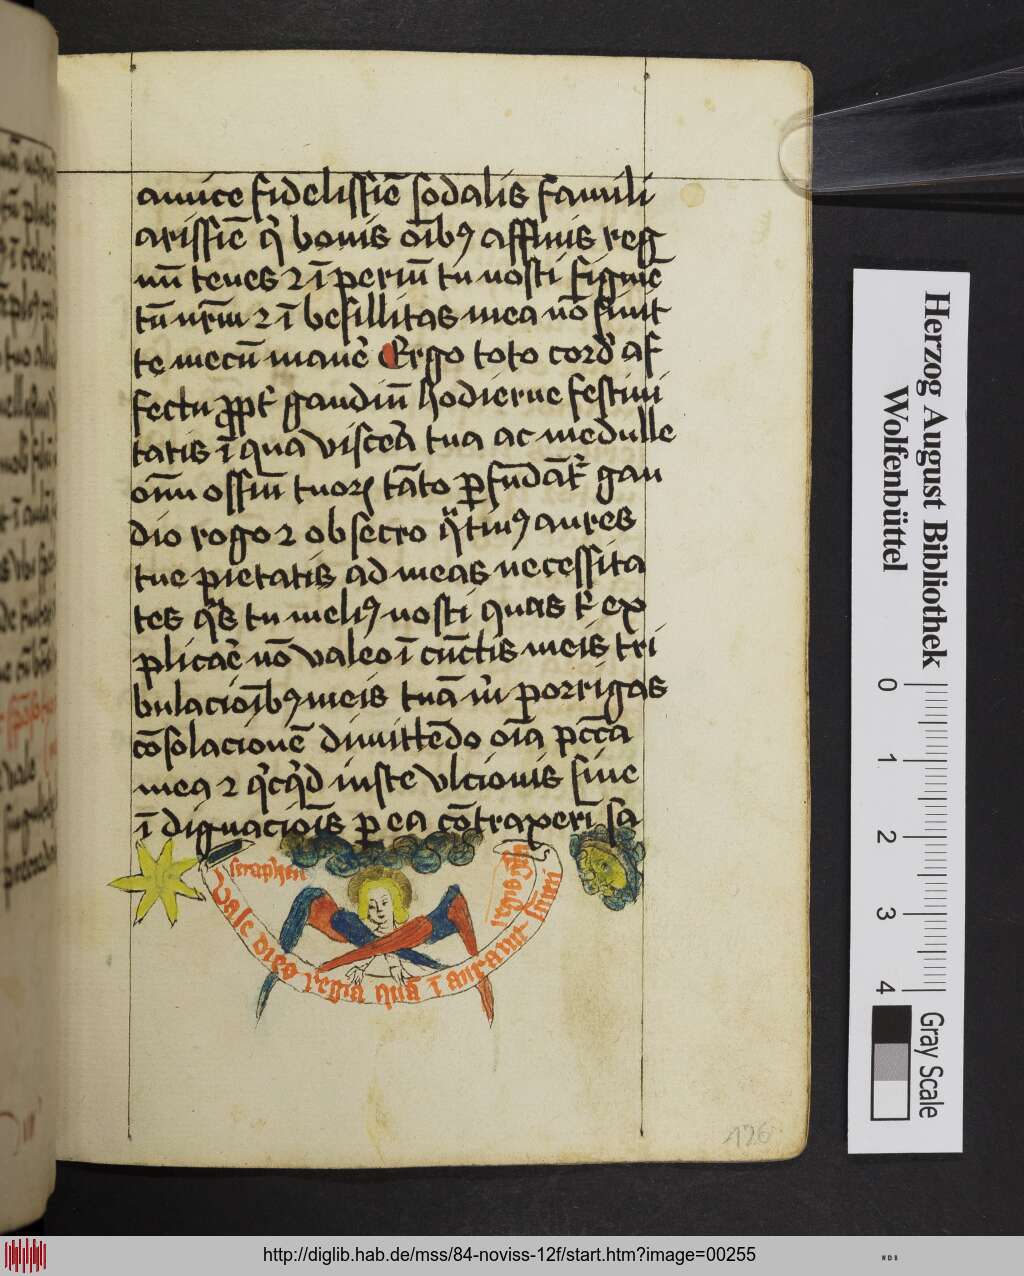 amice fidelissīe sodalis famili
arissīe q̇ bonis oīb⁹ affinis reg
nū tenes ⁊ īperiū tu nosti figmē
tū nr̄m ⁊ ībesillitas mea nō sinit
te mecū manēe Ergo toto cord̕ af
fectu ꝓpt̕ gaudiū hodierne festivi
tatis ī qua viscēa tua ac medulle
oīm ossiū tuoꝝ tāto ꝑfūdāt̕ gau
dio rogo ⁊ obsecro q̄tin⁹ aures
tue pietatis ad meas necessita
tes q̄s tu meli⁹ nosti quas t̕ ex
plicāe nō valeo ī cūctis meis tri
bulacioīb⁹ meis tuā m̕ porrigas
cōsolacionē dimittēdo oīa pccā
mea ⁊ q̇cq̇d iuste vlcionis sine
īdignacioīs ꝑ ea cōtraxerī sa
seraphin
Vale dies regia quā ī aurauit
Herzog August Bibliothek
Wolfenbüttel
0
1
2
3
4
Gray Scale
126
http://diglib.hab.de/mss/84-noviss-12f/start.htm?image=00255